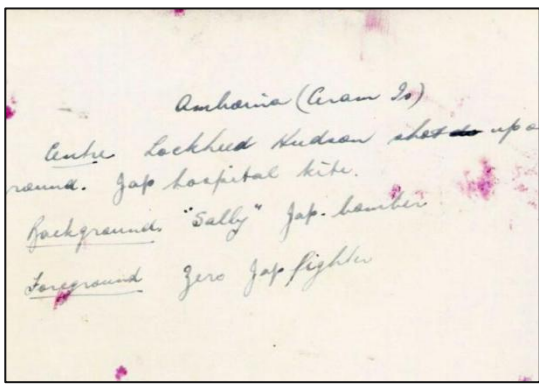 Amboina (Ceram Is)
Centre Lockheed Hudson shot up o
round. Jap hospital kite.
Background "Sally" Jap. bomber
Foreground Zero Jap fighter